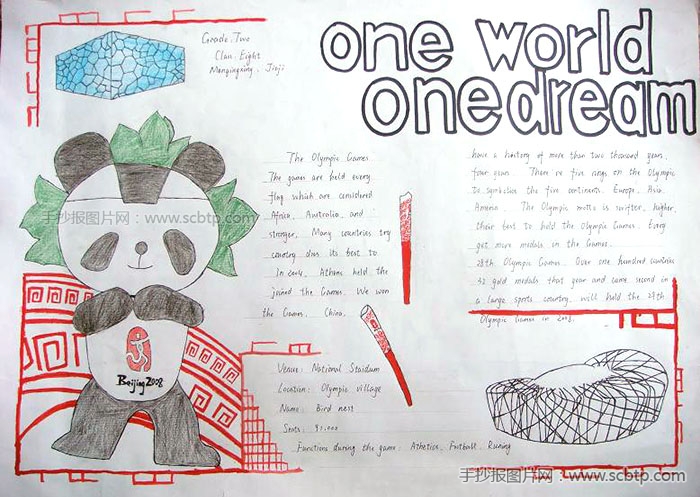 one world
one dream
Grade . Two
Class . Eight
The Olympic Games
The games are held every
flag which are considered
Africa, Australia, and
stronger. Many countries try
country does its best to
In 2004, Athens held the
joined the Games. We won
the Games. China,
have a history of more than two thousand years.
four year. There re five rings on the Olympic
to symbolize the five continents. Europe, Asia,
America. The Olympic motto is swifter, higher,
their best to hold the Olympic Games. Every
get more medals in the Games.
28th Olympic Games. Over one hundred countries
32 gold medals that year and came second in
a large sports country, will hold the 29th
Olympic Games in 2008.
手抄报图片网:www.scbtp.com
Beijing 2008
Venue: National Staidum
Location: Olympic village
Name: Bird nest
Seats: 91.000
Functions during the game: Athetics, Football, Runing
手抄报图片网:www.scbtp.com